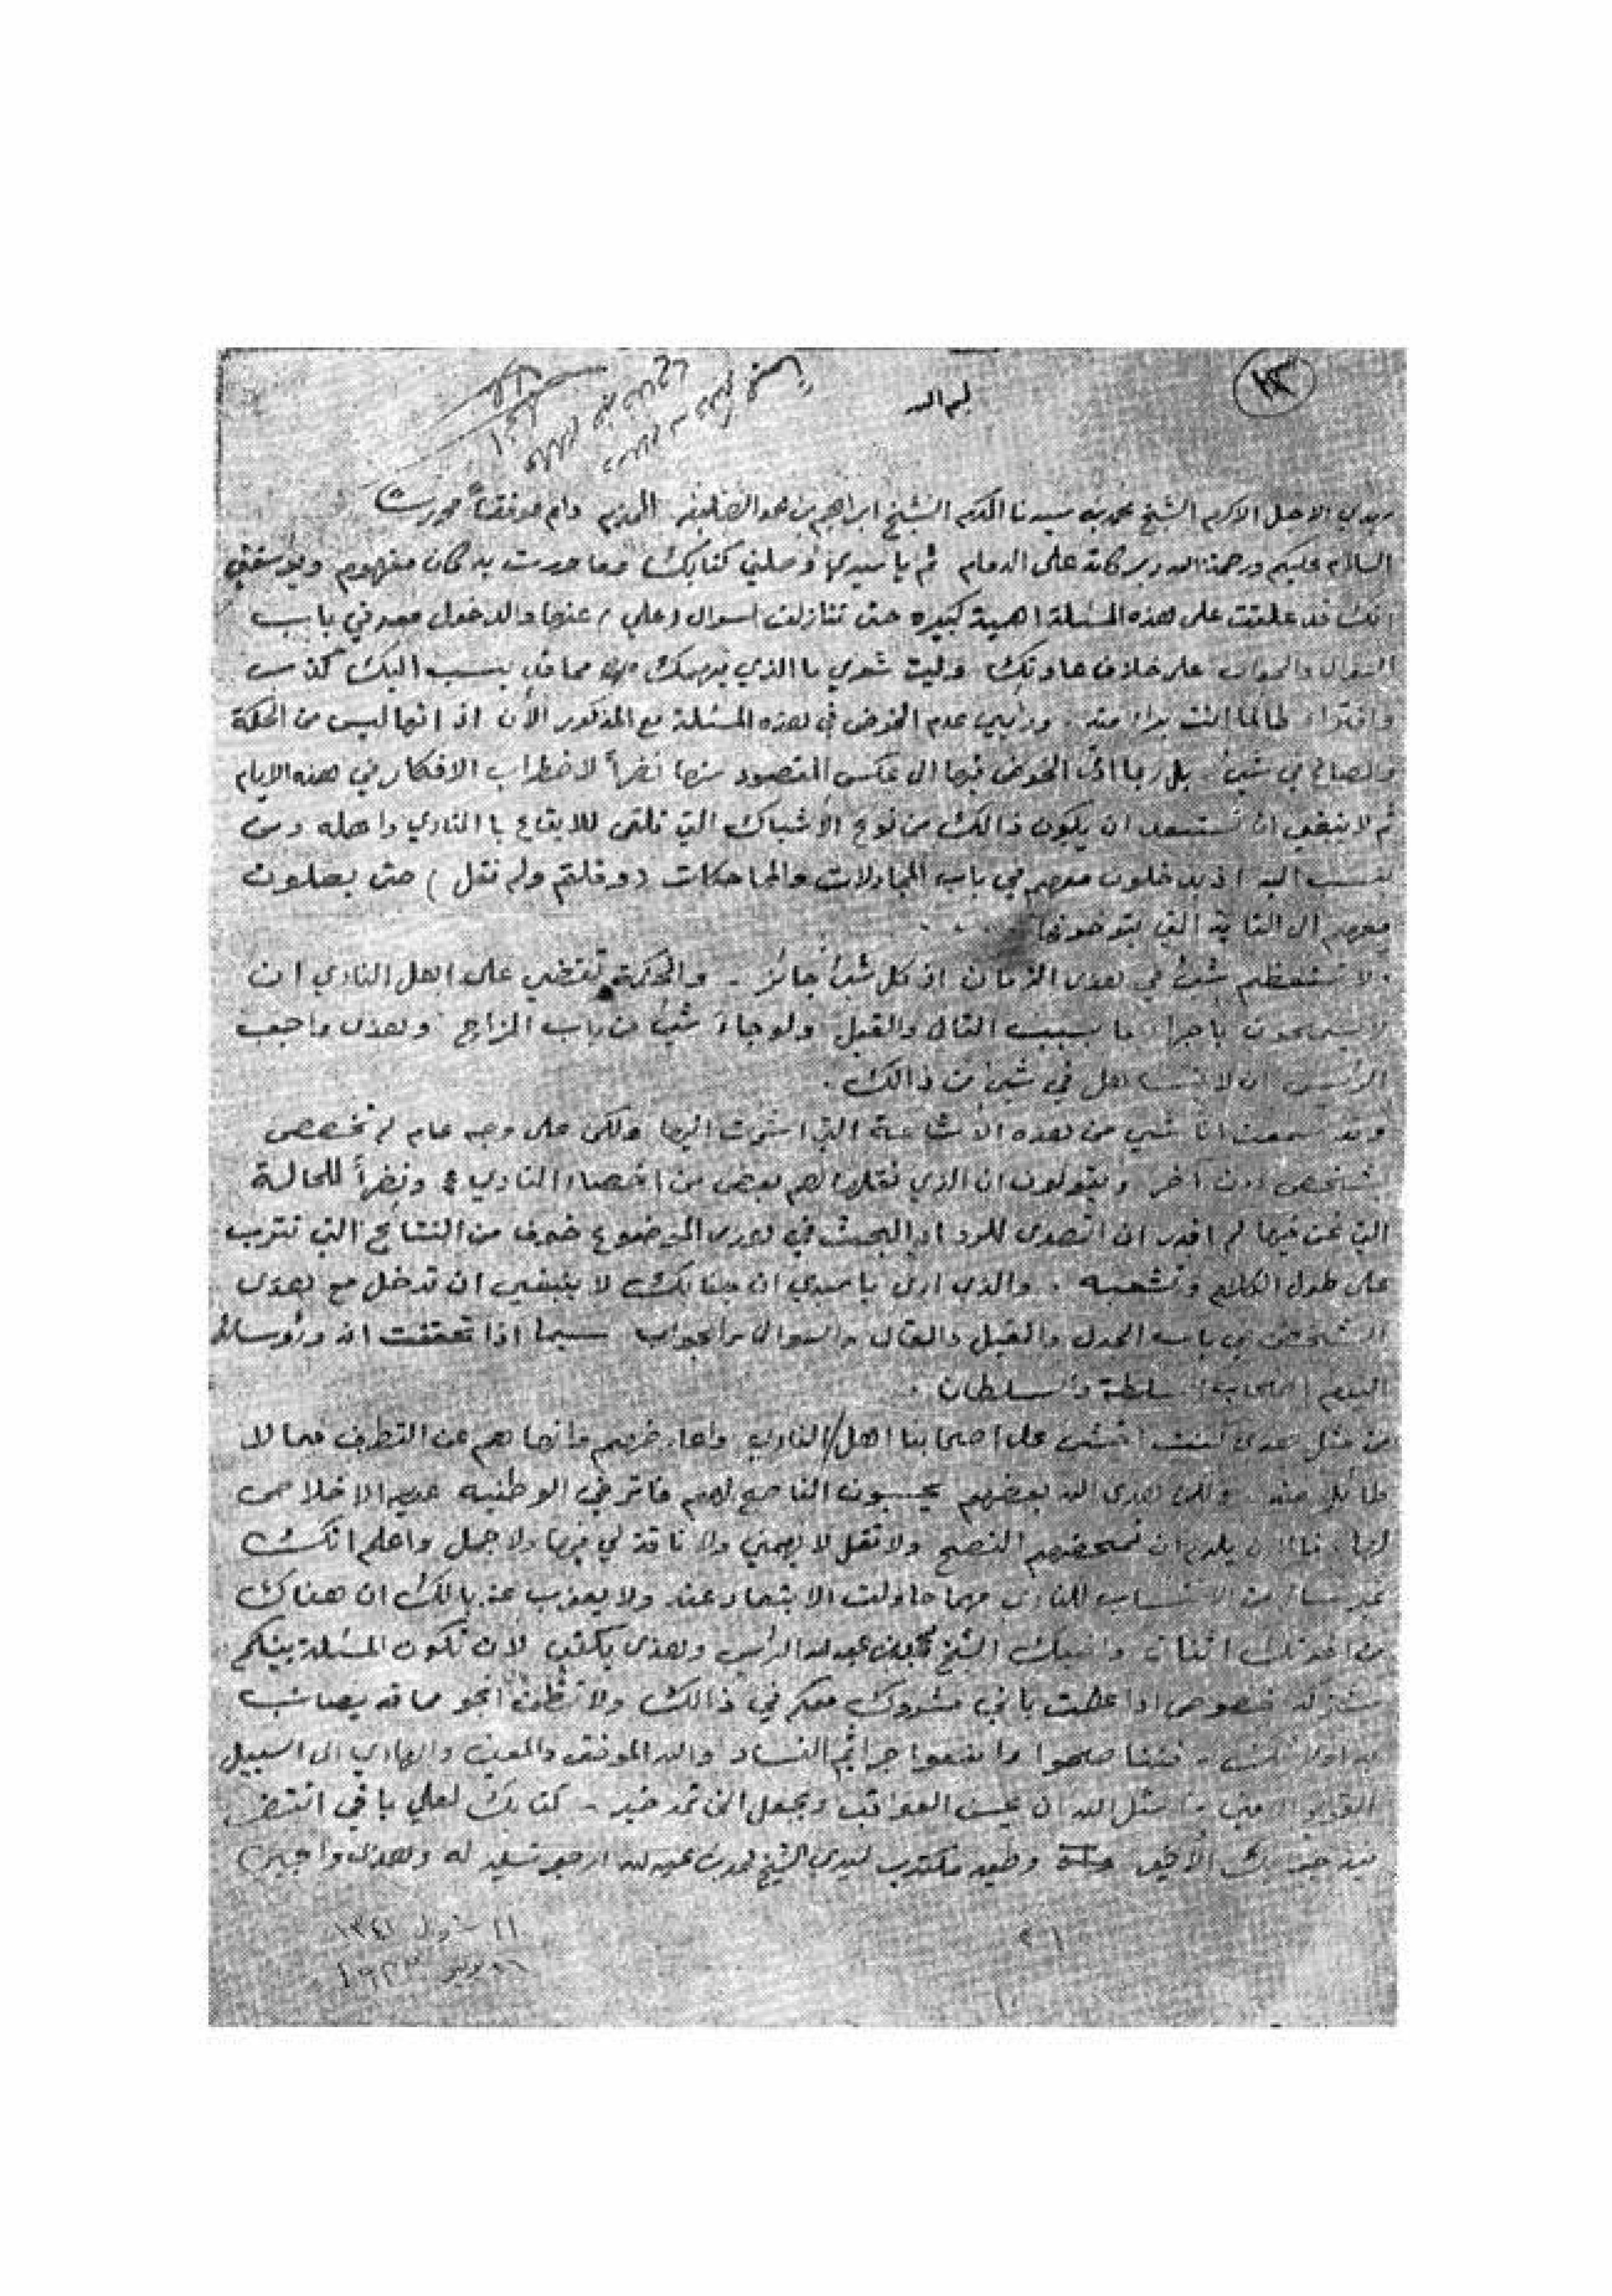 ١٣
بسم الله
سيدي الاجل الاكرم الشيخ محمد بن سيدنا المكرم الشيخ ابراهيم بن محمد الخليفة المحترم دام موفقاً محروساً
السلام عليكم ورحمة الله وبركاته على الدوام ثم يا سيدي وصلني كتابك وما حررت به كان مفهوم ويؤسفني
انك قد علقت على هذه المسئلة اهمية كبيره حتى تنازلت لسوال (علي) عنها والدخول معه في باب
السوال والجواب على خلاف عادتك وليت شعري ما الذي يهمك مما قد ينسب اليك كذب
وافتراء طالما انت براء منه. ورأيي عدم الخوض في هذه المسئلة مع المذكور الأن اذ انها ليس من الحكمة
والصالح في شيئ بل ربما ادى الخوض فيها الى عكس المقصود منها نضراً لاضطراب الافكار في هذه الايام
ثم لا ينبغي ان تستبعد ان يكون ذالك من نوع الأشباك التي تلقى للايقاع با النادي واهله ومن
ينسب اليه اذ يدخلون معهم في باب المجادلات والمماحكات (وقلتم ولم نقل) حتى يصلون
معهم الى الغاية التي يتوخونها
ولا تستعظم شيئ في هذى الزمان اذ كل شيئ جائز - والحكمة تقتضي على اهل النادي ان
لا يسمحون باجراء ما يسبب القال والقيل ولو جاء شيئ من باب المزاح وهذى واجب
الرئيس ان لا يتساهل في شيئ من ذالك.
وقد سمعت انا شيئ من هذه الأشاعة التي اشرت اليها ولكن على وجه عام لم تخصص
بشخص دون آخر ويقولون ان الذي نقلها لهم بعض من اعضاء النادي ونضراً للحالة
التي نحن فيها لم اقدر ان اتصدى للرد او البحث في هذى الموضوع خوف من النتائج التي تترتب
على طول الكلام وتشعبه . والذي ارى يا سيدي ان جنابك لا ينبغي ان تدخل مع هذى
الشخص في باب الجدل والقيل والقال والسوال والجواب سيما اذا تحققت انه ورؤسائه
اليوم اصحاب السلطة والسلطان .
من مثل هذى كنت اخشى على اصحابنا اهل النادي واعارضهم وانهاهم عن التطرف فيما لا
طائل منه ولكن هدى الله بعضهم يحسبون الناصح لهم فاتر في الوطنيه عديم الاخلاص
لها، فالان يلزم ان تمحضهم النصح ولا تقل لا يهمني ولا ناقة لي فيها ولا جمل واعلم انك
غير سالم من الانتساب للنادي مهما حاولت الابتعاد عنه ولا يعزب عن بالك ان هناك
من اخوتك اثنان وابن عمك الشيخ محمد بن عبدالله الرئيس وهذى يكفي لان تكون المسئلة بينكم
مشتركه خصوص اذا علمت باني مشروك معكم في ذالك ولا تظن انجو مما قد يصاب
به اولائك - فتناصحوا وامنعوا جراثيم الفساد والله الموفق والمعين والهادي الى السبيل
القويم ... نسئل الله ان يحسن العواقب ويجعل الى خير - كتابك لعلي باقي انتضر
... جنابك الأخير وطيه مكتوب لسيدي الشيخ محمد بن عبدالله ارجو تسليمه له وهذى واجبين
١١ شوال ١٣٤١
٢٦ يونيو ١٩٢٣